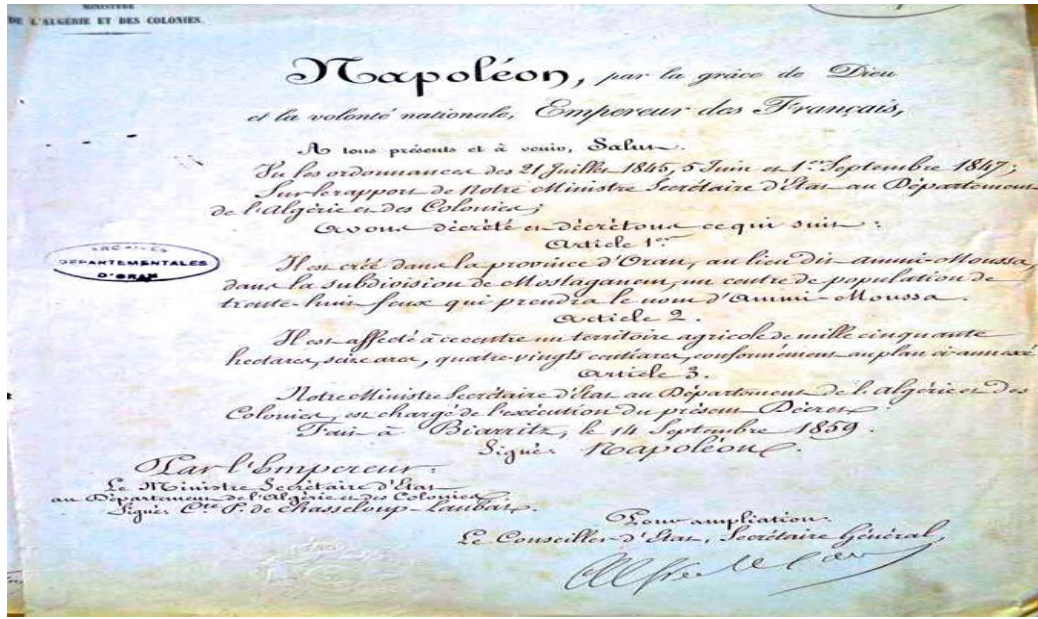 MINISTÈRE
DE L'ALGÉRIE ET DES COLONIES.
Napoléon, par la grâce de Dieu
et la volonté nationale, Empereur des Français,
A tous présents et à venir, Salut.
Vu les ordonnances des 21 Juillet 1845, 5 Juin et 1er Septembre 1847;
Sur le rapport de Notre Ministre Secrétaire d'Etat au Département
de l'Algérie et des Colonies;
Avons décrété et décrétons ce qui suit:
Article 1er
Il est créé dans la province d'Oran, au lieu dit Ammi-Moussa,
dans la subdivision de Mostaganem, un centre de population de
trente-huit feux qui prendra le nom d'Ammi-Moussa.
Article 2.
Il est affecté à ce centre un territoire agricole de mille cinquante
hectares, seize ares, quatre-vingts centiares, conformément au plan ci-annexé
Article 3.
Notre Ministre Secrétaire d'Etat au Département de l'Algérie et des
Colonies, est chargé de l'exécution du présent Décret.
Fait à Biarritz, le 14 Septembre 1859.
Signé: Napoléon.
ARCHIVES
DÉPARTEMENTALES
D'ORAN
Par l'Empereur:
Le Ministre Secrétaire d'Etat
au Département de l'Algérie et des Colonies.
Signé: Cte P. de Chasseloup-Laubat.
Pour ampliation:
Le Conseiller d'Etat, Secrétaire Général,